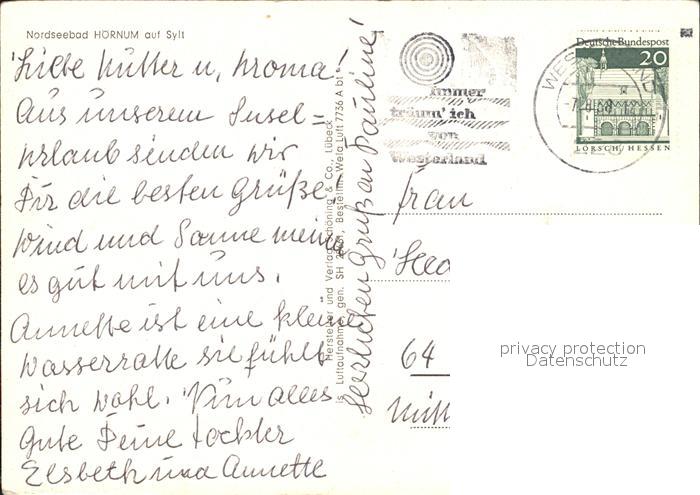 Nordseebad HÖRNUM auf Sylt
Liebe Mutter u, Kroma!
Aus unserem Insel=
urlaub senden wir
Dir die besten Grüße
Wind und Sonne meinen
es gut mit uns.
Annette ist eine kleine
Wasserratte sie fühlt
sich wohl. Nun alles
Gute Deine Tochter
Elsbeth und Annette
Herzlichen Gruß an Pauline!
Hersteller und Verlag Schöning & Co., Lübeck
Luftaufnahme gen. SH Bestellnr. Wela Luft 7736 A bt
immer
träum' ich
von
Westerland
Deutsche Bundespost
20
LORSCH/HESSEN
Frau
64
privacy protection
Datenschutz